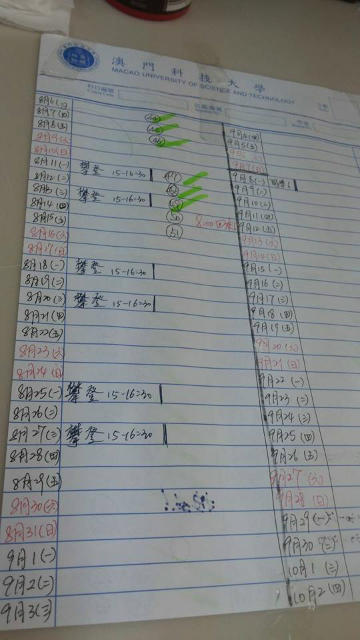 澳門科技大學
MACAU UNIVERSITY OF SCIENCE AND TECHNOLOGY
8月7(四)
8月8(五)
8月11(一) 攀登 15-16:30
8月12(二)
攀登 15-16:30
8月14(四)
8月15(五)
8月18(一) 攀登 15-16:30
8月19(二)
8月20(三) 攀登 15-16:30
8月21(四)
8月22(五)
8月23(六)
8月24(日)
8月25(一) 攀登 15-16:30
8月26(二)
8月27(三) 攀登 15-16:30
8月28(四)
8月29(五)
8月30(六)
8月31(日)
9月1(一)
9月2(二)
9月3(三)
9月4(四)
9月5(五)
9月8(一) 開學
9月9(二)
9月10(三)
9月11(四)
9月12(五)
9月13(六)
9月14(日)
9月15(一)
9月16(二)
9月17(三)
9月18(四)
9月19(五)
9月20(六)
9月21(日)
9月22(一)
9月23(二)
9月24(三)
9月25(四)
9月26(五)
9月27(六)
9月28(日)
9月29(一)
9月30(二)
10月1(三)
10月2(四)